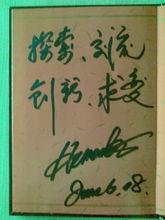 探索、研究
创新、求变
June 6. 08.